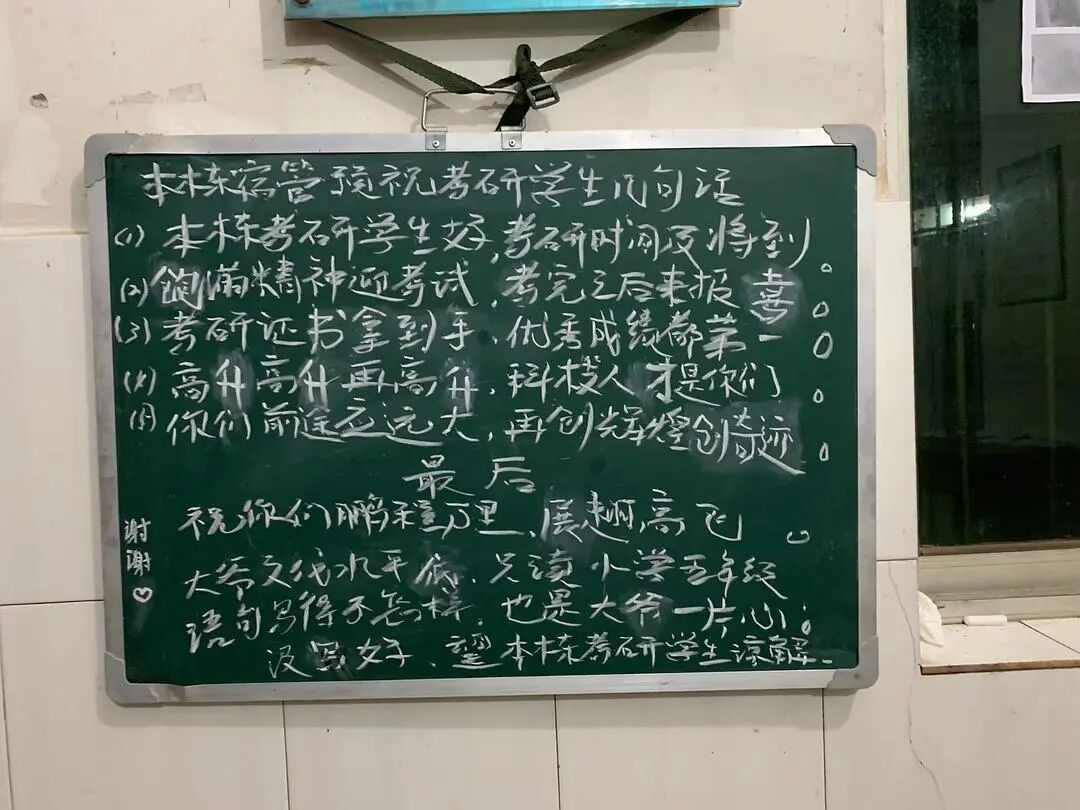 本栋宿管预祝考研学生几句话
(1) 本栋考研学生好，考研时间及将到。
(2) 饱满精神迎考试，考完之后来报喜。
(3) 考研证书拿到手，优秀成绩都第一。
(4) 高升高升再高升，科技人才是你们。
(5) 你们前途之远大，再创辉煌创奇迹。
最后
祝你们鹏程万里，展翅高飞。
大爷文化水平底，只读小学五年级
语句写得不怎样，也是大爷一片心；
没写好，望本栋考研学生谅解.
谢谢♡